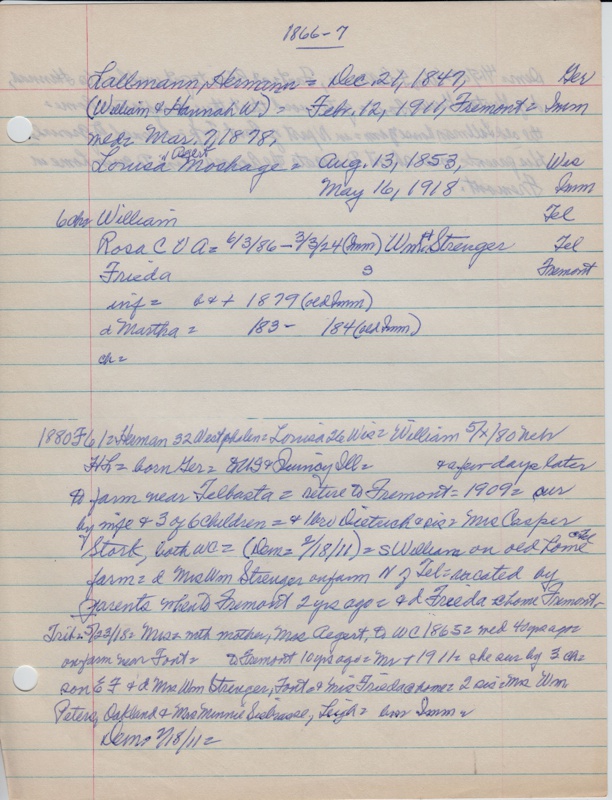 1866-7
Lallmann, Hermann = Dec. 21, 1847, Ger
(William & Hannah W.) = Febr. 12, 1911, Fremont = Imm
med = Mar. 7, 1878,
Louisa Aegert Moshage = Aug. 13, 1853, Wis
May 16, 1918 Imm
6 chr William Tel
Rosa C V A = 6/3/86 - 3/3/24 (Imm) Wm H Strenger Tel
Frieda 3 Fremont
inf = b & + 1879 (old Imm)
d Martha = 183- 184 (old Imm)
ch =
1880 F6 1 = Herman 32 Westphalen = Louisa 26 Wis = William 5/x/80 Nebr
HL = born Ger = to US & Quincy Ill = & a few days later
to farm near Telbasta = retire to Fremont = 1909 = sur
by wife & 3 of 6 children = & 1 bro Dietrich & sis = Mrs Casper
Stork, both WC = (Dem = 2/18/11) = s William on old home
farm = d Mrs Wm Strenger on farm N of Tel = vacated by
parents when to Fremont 2 yrs ago = & d Frieda @ home Fremont,
Trib = 5/23/18 = Mrs = with mother, Mrs Aegert, to WC 1865 = med 40 yrs ago =
on farm near Font = to Fremont 10 yrs ago = Mr + 1911 = she sur by 3 ch =
son E F & d Mrs Wm Strenger, Font & Miss Frieda @ home = 2 sis = Mrs Wm
Peters, Oakland & Mrs Minnie, Leigh = bur Imm =
Dem = 2/18/11 =